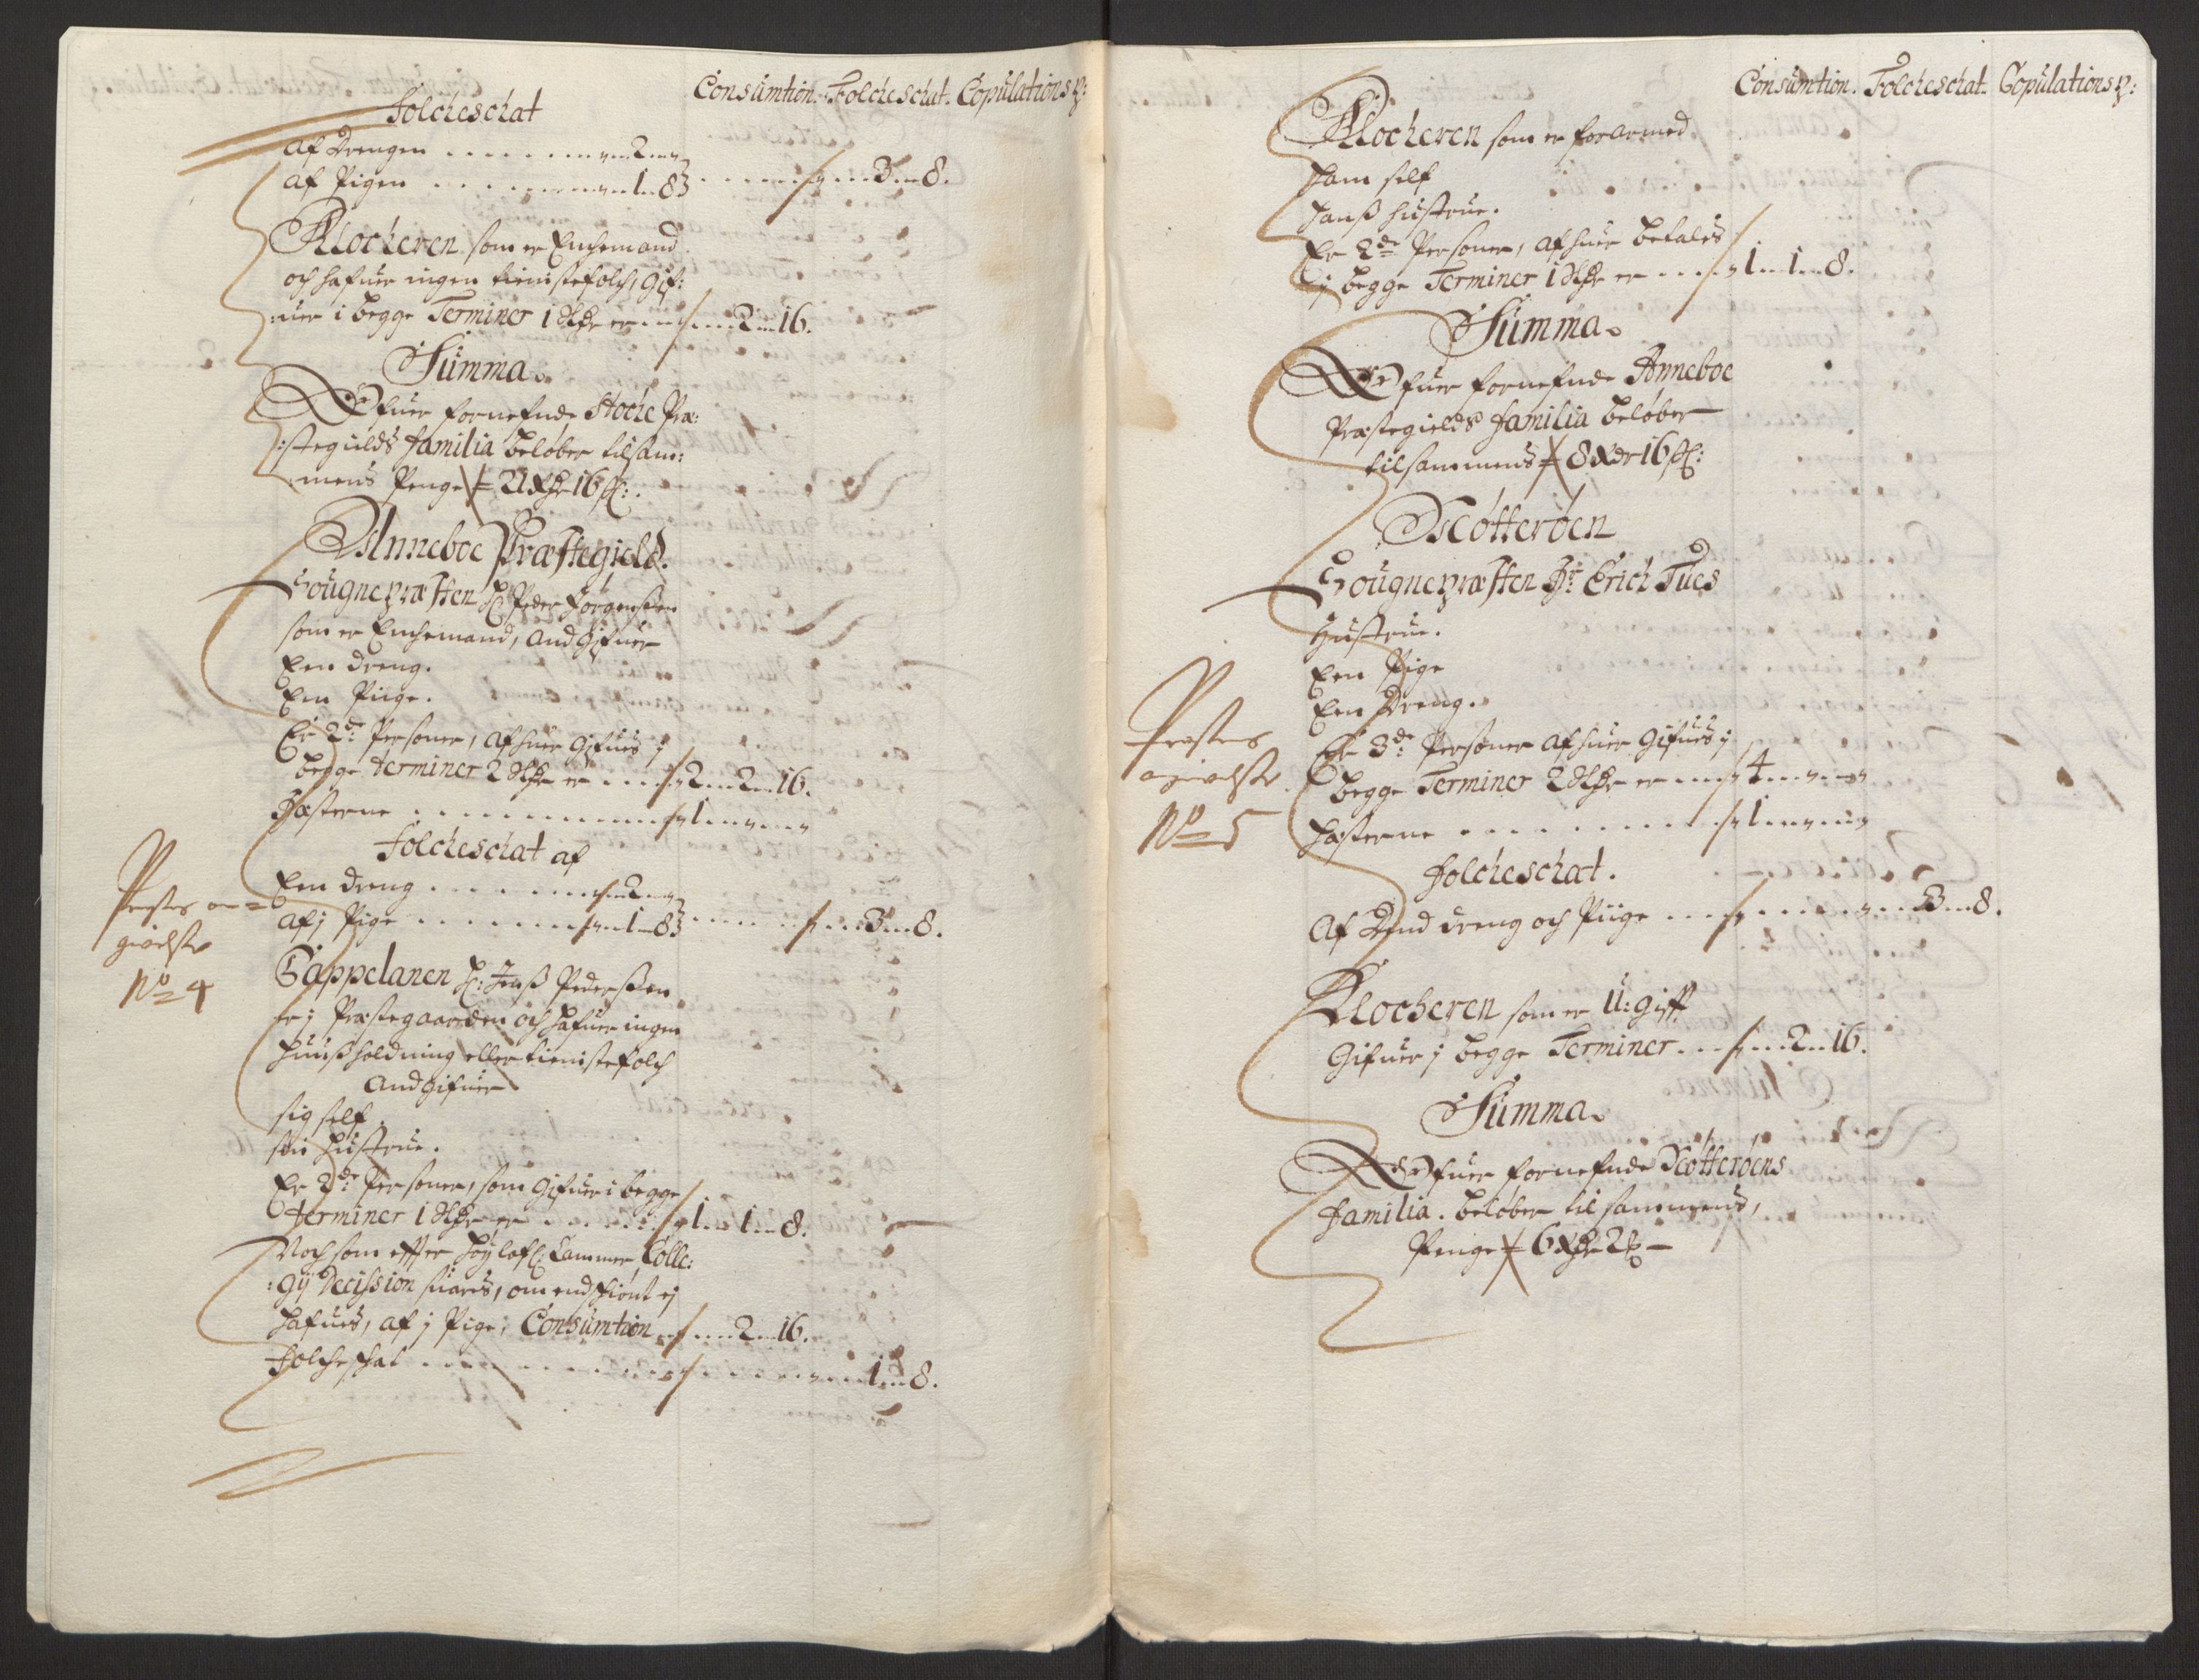 Consumtion. Folcheschat. Copulations p:
Folcheschat
Af Drengen . . . . . . . " 2 "
Af Pigen . . . . . . . " 1 " 8 . . . . . " 3 " 8.
Klocheren som er Enchemand
och hafuer ingen tienistefolch, Gif:
:uer i begge Terminer 1 Rdr er . . . 2 " 16.
Summa.
Ofuer forneffnde Stoche Præ:
:stegields Familia beløber tilsam:
mens Penge 21 Rdr 16 s:
Anneboe Præstegield.
Sougnepræsten Hr Peder Jørgensen
som er Enchemand, And Gifuer
Een dreng.
Een Piige.
Er 2de Personer, Af huer Gifues j
begge Terminer 2 Rdr er . . . 2 " 2 " 16.
Hæsterne . . . . . . . . . . 1 " "
Folcheschat af
Een dreng . . . . . . . " 2 "
Af j Pige . . . . . . . " 1 " 8 . . . . " 3 " 8.
Præstens an=
givelse
No 4
Cappelanen Hr: Jenß Pederßen
er j Præstegaarden och hafuer ingen
Huußholdning eller tienistefolch
And Gifuer
sig self
sin Hustrue.
Er 2de Personer, som Gifuer i begge
Terminer 1 Rdr er . . . . 1 " 1 " 8.
Noch som effter Høylofl: Cammer Colle:
:gij Decission suares, om endschiønt ej
hafues, af j Pige, Consumtion . . . 2 " 16.
Folcheschat . . . . . . . . . . . . 1 " 8.
Consumtion. Folcheschat. Copulations p:
Klocheren som er forarmed
Ham self
Hanß Hustrue.
Er 2de Personer, Af huer betales
j begge Terminer 1 Rdr er . . . . 1 " 1 " 8.
Summa.
Ofuer forneffnde Anneboe
Præstegields Familia beløber
tilsammens 8 Rdr 16 s:
Skøtterøen
Sougnepræsten Hr Erich Tues
Hustrue.
Een Pige
Een Dreng.
Er 3de Personer Af huer Gifues j
begge Terminer 2 Rdr er . . . . 4 " "
Hæsterne . . . . . . . . . . 1 " "
Præstens
angivelse
No 5
Folcheschat.
Af Dend dreng och Piige . . . . . . . . 3 " 8.
Klocheren som er U:gifft
Gifuer j begge Terminer . . . . 2 " 16.
Summa.
Ofuer forneffnde Skøtterøens
Familia. beløber til sammens,
Penge 6 Rdr 2 –